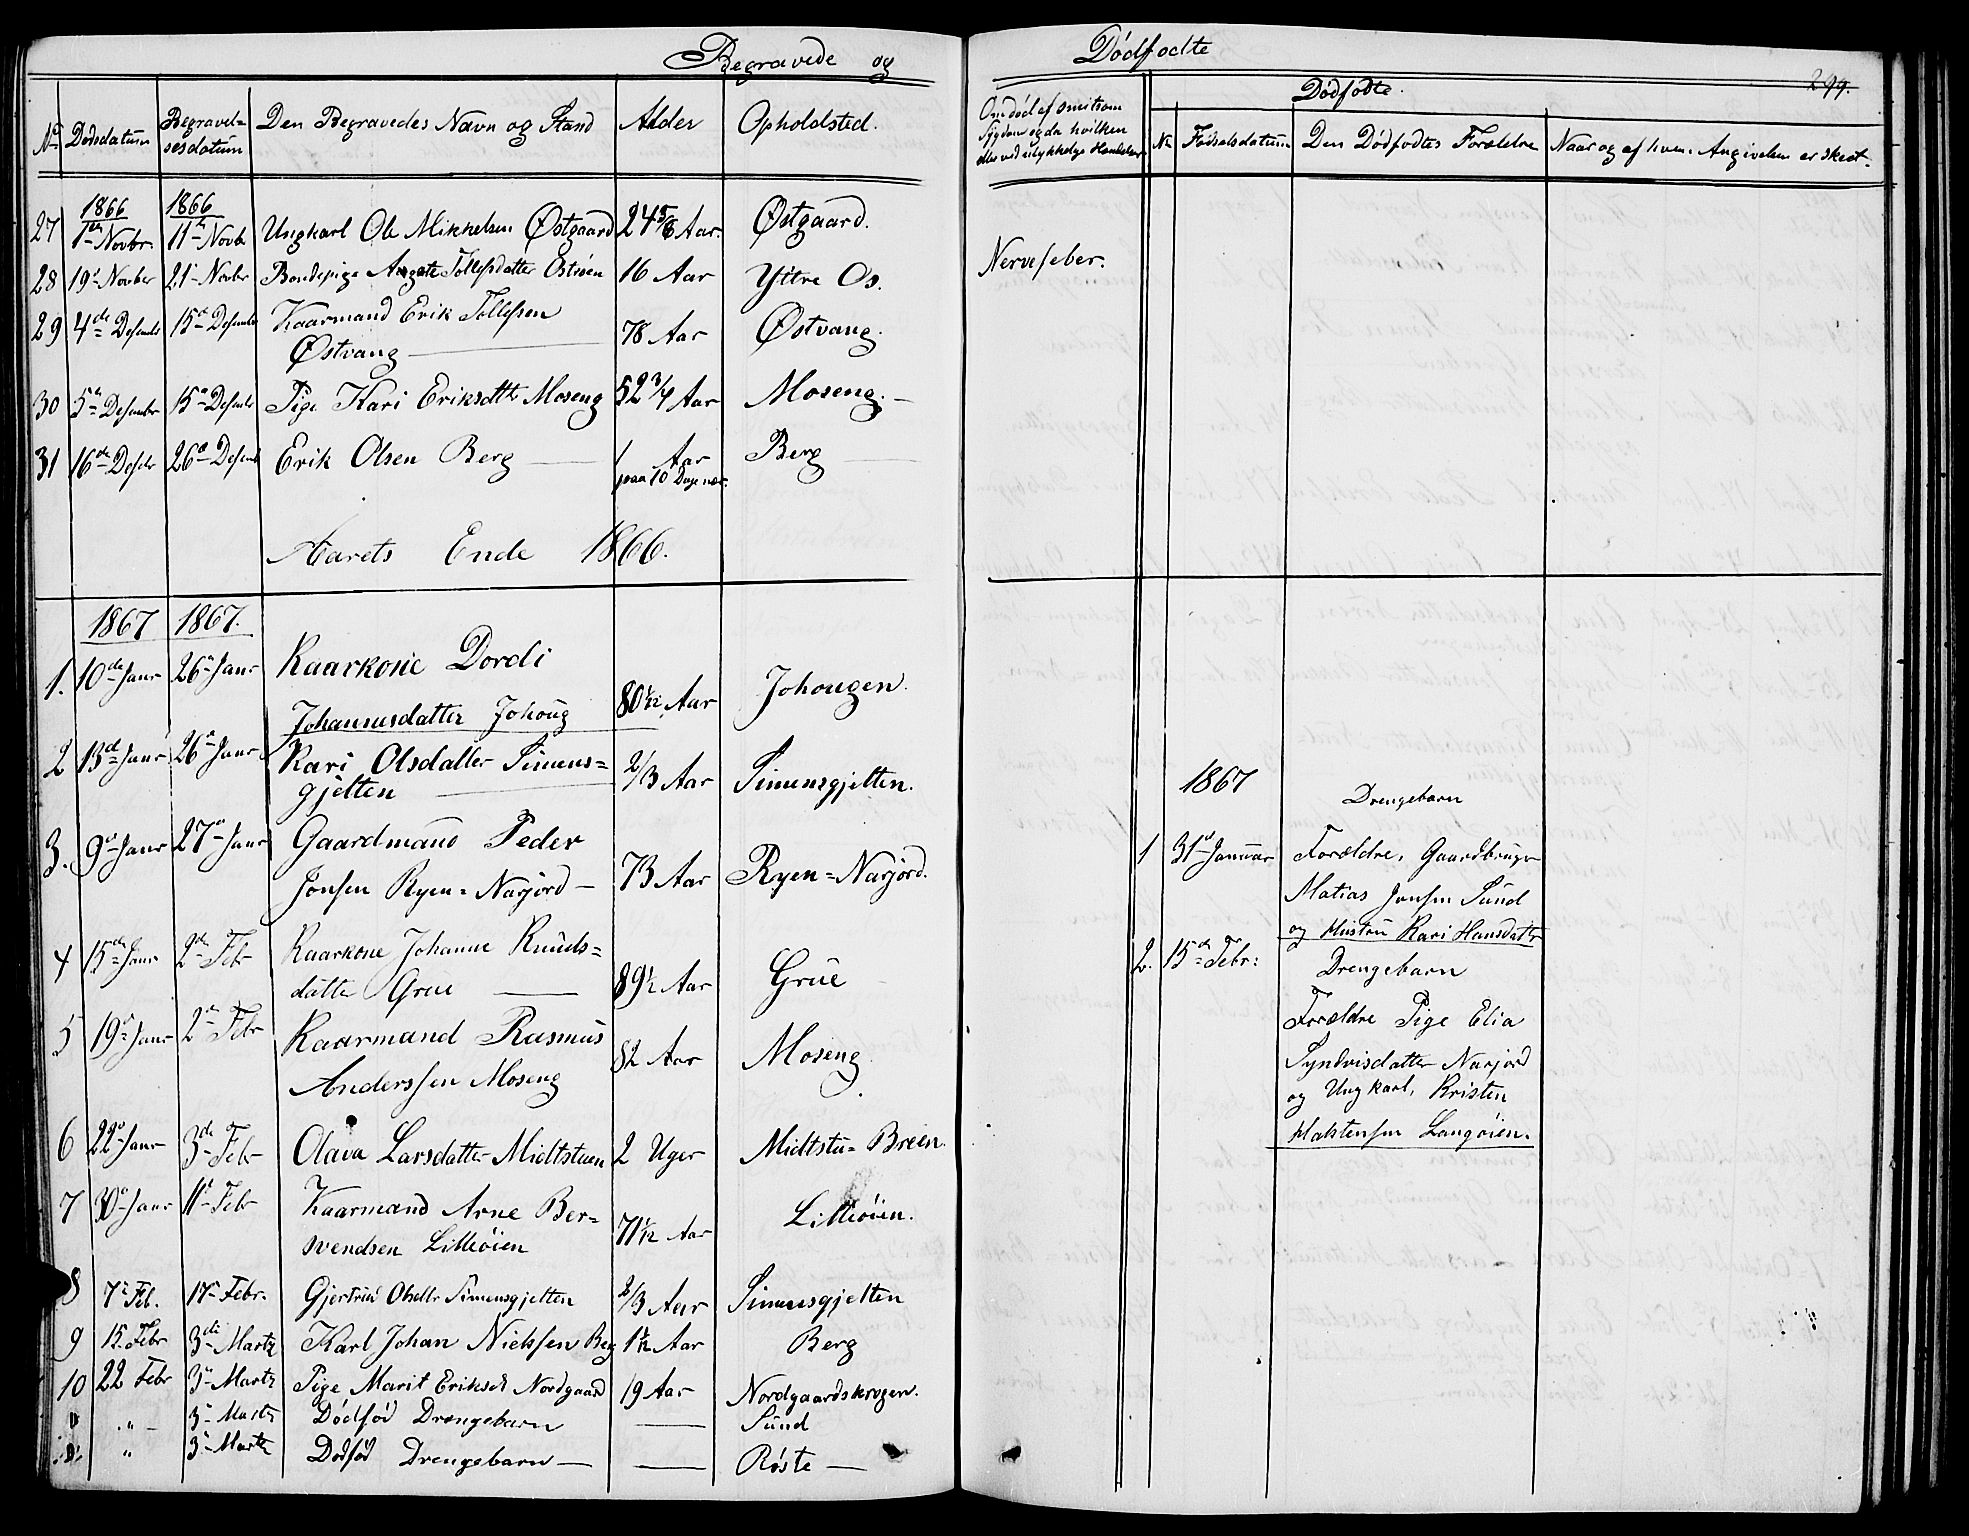 Begravede og
No Dødsdatum Begravelsesdatum Den Begravedes Navn og Stand Alder Opholdsted.
1866 1866
27 7de Novbr. 11te Novb Ungkarl Ole Mikkelsen Østgaard 24 5/6 Aar. Østgaard.
28 19de Novber 21de Novbr Bondepige Tollefsdatter 16 Aar Yttre Os.
29 4de Desemb 15de Desemb Kaarmand Erik Tollefsen
Østvang 78 Aar Østvang.
30 5te Desember 15de Desember Pige Kari Eriksdtt Moseng 52 3/4 Aar Moseng.
31 16de Desebr 26de Desemb Erik Olsen Berg 1 Aar Berg
paa 10 Dage nær.
Aarets Ende 1866.
1867 1867.
1. 10de Janr 26de Janr Kaarkone Dordi
Johannesdatter Johoug 80 1/12 Aar Johougen.
2 13de Janr 26de Janr Kari Olsdatter Simens=
gjelten 2/3 Aar Simensgjelten.
3. 9de Janr 27de Janr Gaardmand Peder
Jonsen Ryen=Narjord 73 Aar Ryen=Narjord.
4 15de Janr 2de Febr Kaarkone Johanne Knuds=
datter Grue 89 1/2 Aar Grue
5 19de Janr 2de Febr Kaarmand Rasmus
Anderssen Moseng 82 Aar Moseng.
6 22de Janr 3de Febr Olava Larsdatter Midtstuen 2 Uger Midtstu=Breen.
7 30de Janr 11te Febr Kaarmand Arne Ber=
svendsen Lilleøien 71 1/12 Aar Lilleøien.
8 7de Feb. 17de Febr. Gjertrud Olsdtr Simensgjelten 2/3 Aar Simensgjelten
9 15. Febr 3de Marts Karl Johan Nielssen Berg 1 1/2 Aar Berg
10 22 Febr 3de Marts Pige Marit Eriksdt Nordgaard 19 Aar Nordgaardskrogen.
" " 3de Marts Dødfød Drengebarn Sund
" " 3de Marts Dødfød Drengebarn Røste
Dødfødte
299.
Om død af smitsom
Sygdom og da hvilken
eller ved ulykkelige Hændelser
Dødfødte.
No Fødselsdatum Den Dødfødtes Forældre Naar og af hvem Angivelsen er skeet.
Nervefeber.
1867 Drengebarn
1 31te Januar Forældre, Gaardbruger
Matias Jonsen Sund
og Hustru Kari Hansdatter
2. 15de Febr: Drengebarn
Forældre Pige Elia
Syndvisdatter Narjord
og Ungkarl, Kristen
Halstensen Langøien.